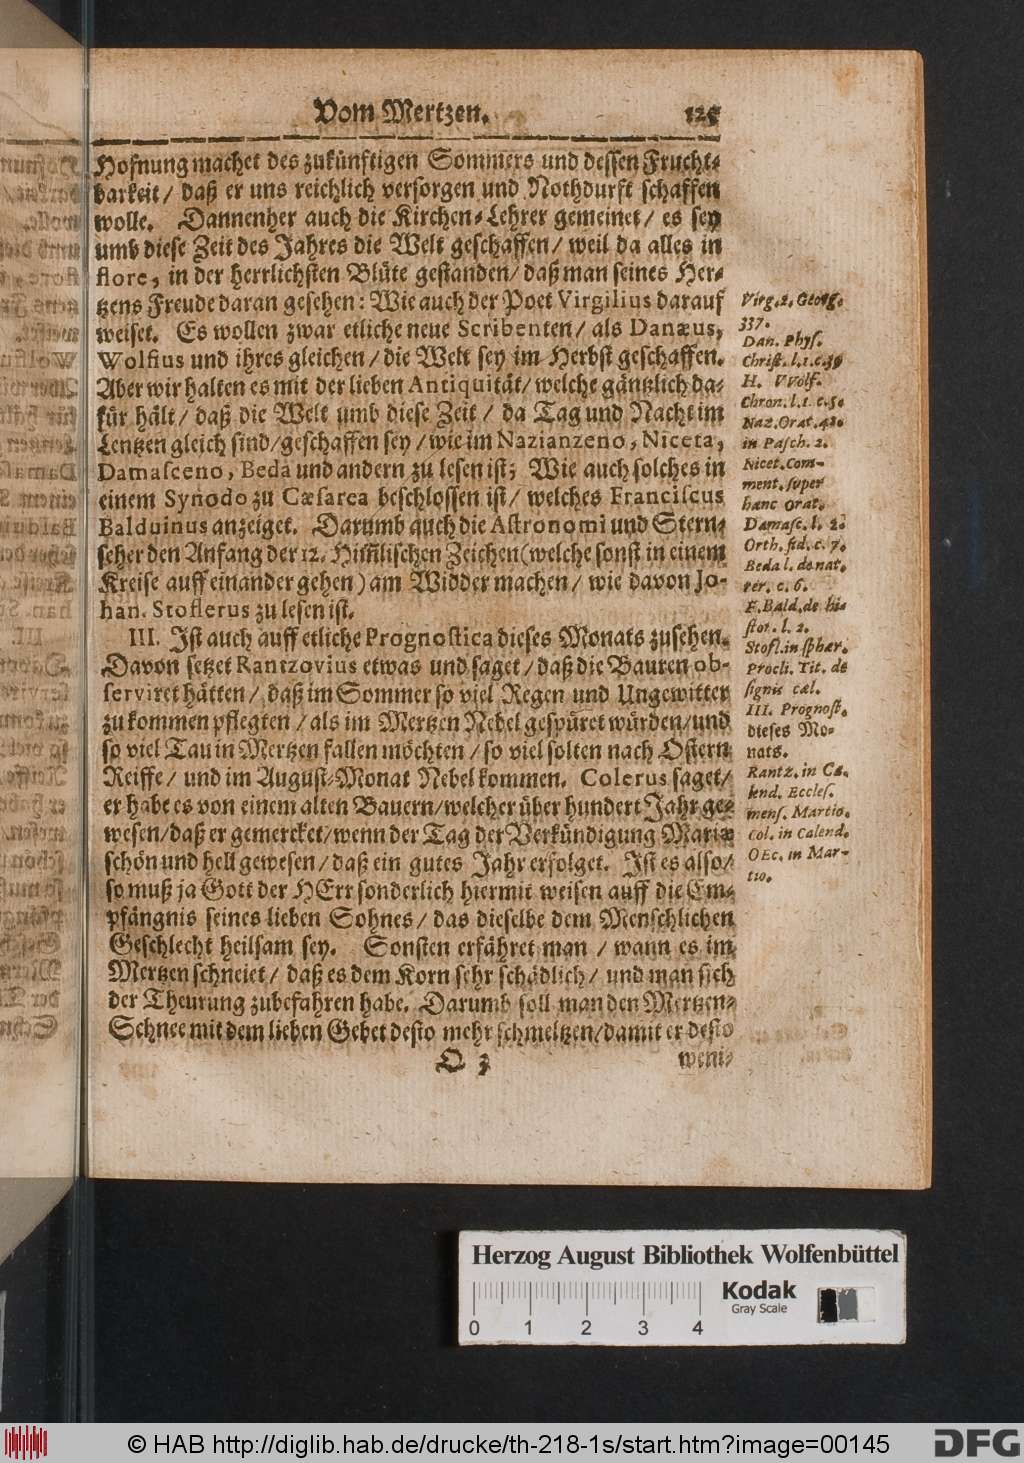 Vom Mertzen. 125
Hofnung machet des zukünftigen Sommers und dessen Frucht-
barkeit / daß er uns reichlich versorgen und Nothdurft schaffen
wolle. Dannenher auch die Kirchen-Lehrer gemeinet / es sey
umb diese Zeit des Jahres die Welt geschaffen / weil da alles in
flore, in der herrlichsten Blüte gestanden / daß man seines Her-
tzens Freude daran gesehen: Wie auch der Poet Virgilius darauf
weiset. Es wollen zwar etliche neue Scribenten / als Danæus,
Wolfius und ihres gleichen / die Welt sey im Herbst geschaffen.
Aber wir halten es mit der lieben Antiquität / welche gäntzlich da-
für hält / daß die Welt umb diese Zeit / da Tag und Nacht im
Lentzen gleich sind / geschaffen sey / wie im Nazianzeno, Niceta,
Damasceno, Beda und andern zu lesen ist; Wie auch solches in
einem Synodo zu Cæsarea beschlossen ist / welches Franciscus
Balduinus anzeiget. Darumb auch die Astronomi und Stern-
seher den Anfang der 12. Him̃lischen Zeichen (welche sonst in einem
Kreise auff einander gehen) am Widder machen / wie davon Jo-
han. Stoflerus zu lesen ist.
III. Ist auch auff etliche Prognostica dieses Monats zusehen.
Davon setzet Rantzovius etwas und saget / daß die Bauren ob-
serviret hätten / daß im Sommer so viel Regen und Ungewitter
zu kommen pflegten / als im Mertzen Nebel gespüret würden / und
so viel Tau in Mertzen fallen möchten / so viel solten nach Ostern
Reiffe / und im August-Monat Nebel kommen. Colerus saget /
er habe es von einem alten Bauern / welcher über hundert Jahr ge-
wesen / daß er gemercket / wenn der Tag der Verkündigung Mariæ
schön und hell gewesen / daß ein gutes Jahr erfolget. Ist es also /
so muß ja Gott der HErr sonderlich hiermit weisen auff die Em-
pfängnis seines lieben Sohnes / das dieselbe dem Menschlichen
Geschlecht heilsam sey. Sonsten erfähret man / wann es im
Mertzen schneiet / daß es dem Korn sehr schädlich / und man sich
der Theurung zubefahren habe. Darumb soll man den Mertzen-
Schnee mit dem lieben Gebet desto mehr schmeltzen / damit er desto
Q 3 weni-
Virg. 2. Georg.
337.
Dan. Phys.
Christ. l. 1. c. 36
H. VVolf.
Chron. l. 1. c. 5.
Naz. Orat. 43.
in Pasch. 2.
Nicet. Com-
ment. super
hanc orat.
Damasc. l. 2.
Orth. fid. c. 7.
Beda l. de nat.
rer. c. 6.
F. Bald. de hi-
stor. l. 2.
Stofl. in sphær.
Procli. Tit. de
signis cæl.
III. Prognost.
dieses Mo-
nats.
Rantz. in Ca-
lend. Eccles.
mens. Martio.
Col. in Calend.
OEc. in Mar-
tio.
Herzog August Bibliothek Wolfenbüttel
Kodak
Gray Scale
0 1 2 3 4
© HAB http://diglib.hab.de/drucke/th-218-1s/start.htm?image=00145
DFG